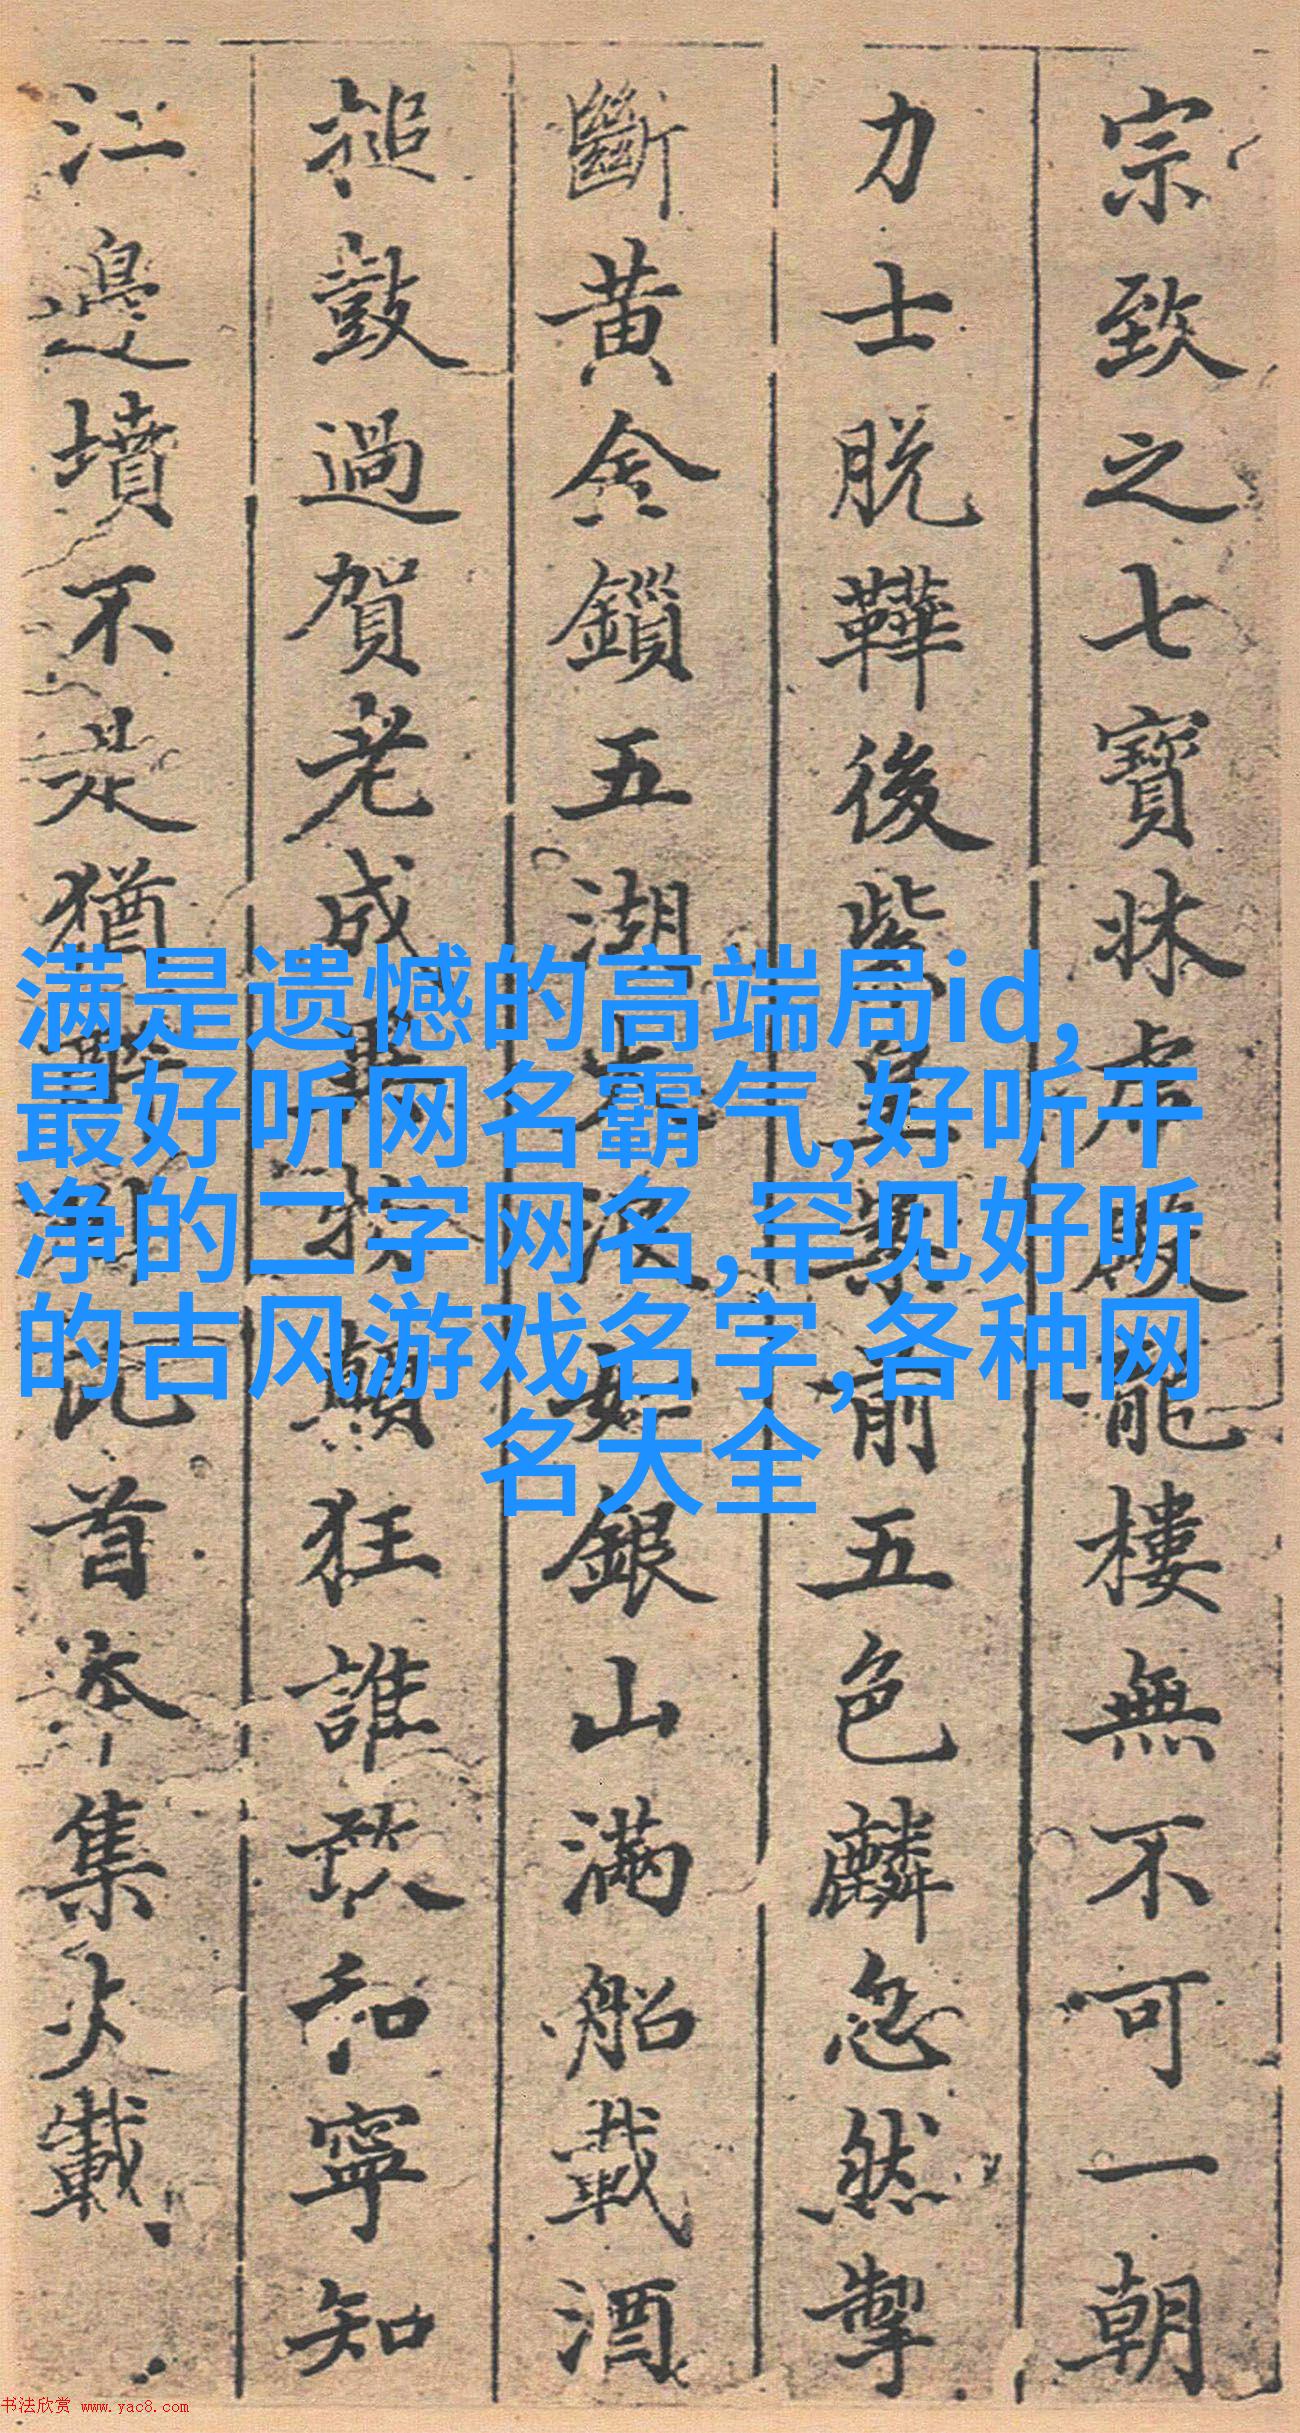 宗致之七寶牀虎殿龍樓無不可一朝
力士脱鞾後紫皇案前五色麟忽然掣
斷黄金鎖五湖大浪如銀山滿船載酒
搥鼓過賀老成異物顛狂誰敢和寧知
江邊墳不是猶醉卧此首本集少載
满是遗憾的高端局id,
最好听网名霸气,好听干
净的二字网名,罕见好听
的古风游戏名字,各种网
名大全
书法欣赏 www.yac8.com